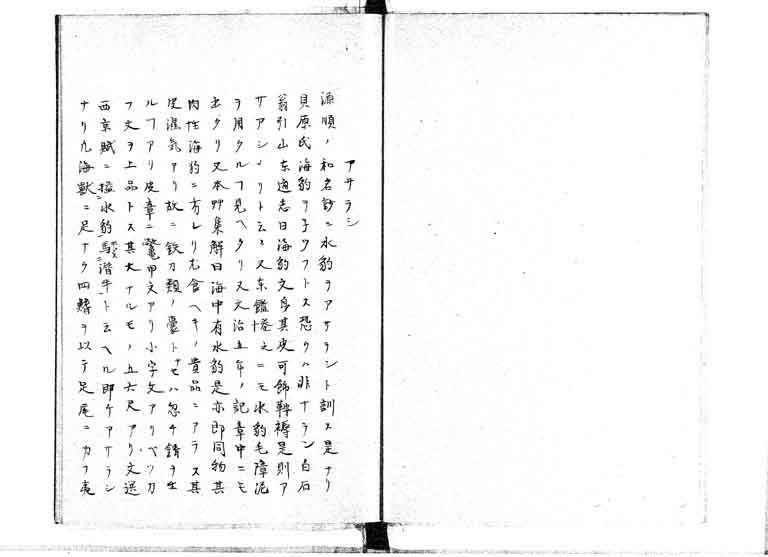 アザラシ
源順ノ和名鈔ニ水豹ヲアザラシト訓ス是ナリ
貝原氏海豹ヲ子ウフトス恐クハ非ナラン白石
翁引山东通志曰海豹文身其皮可飾鞍褥是則ア
ザアシノリト云々又东鑑巻之二モ水豹毛障泥
ヲ用クルフ見ヘタリ又文治五年ノ記章中ニモ
出タリ又本艸集解曰海中有水豹是亦即同物其
肉性海豹ニ方レリ食ヘキノ貴品ニアラス其
皮湿気アリ故ニ鉄刀類ノ嚢トナセハ忽チ錆ヲ生
ルフアリ皮章ニ鼈甲文アリ小字文アリベツカ
フ文ヲ上品トス其大ナルモノ五六尺アリ文选
西京賦ニ搤水豹馽潜牛ト云ヘル即チアザラシ
ナリ凡海獣ニ足ナク四鰭ヲ以テ足尾ニカフ夷